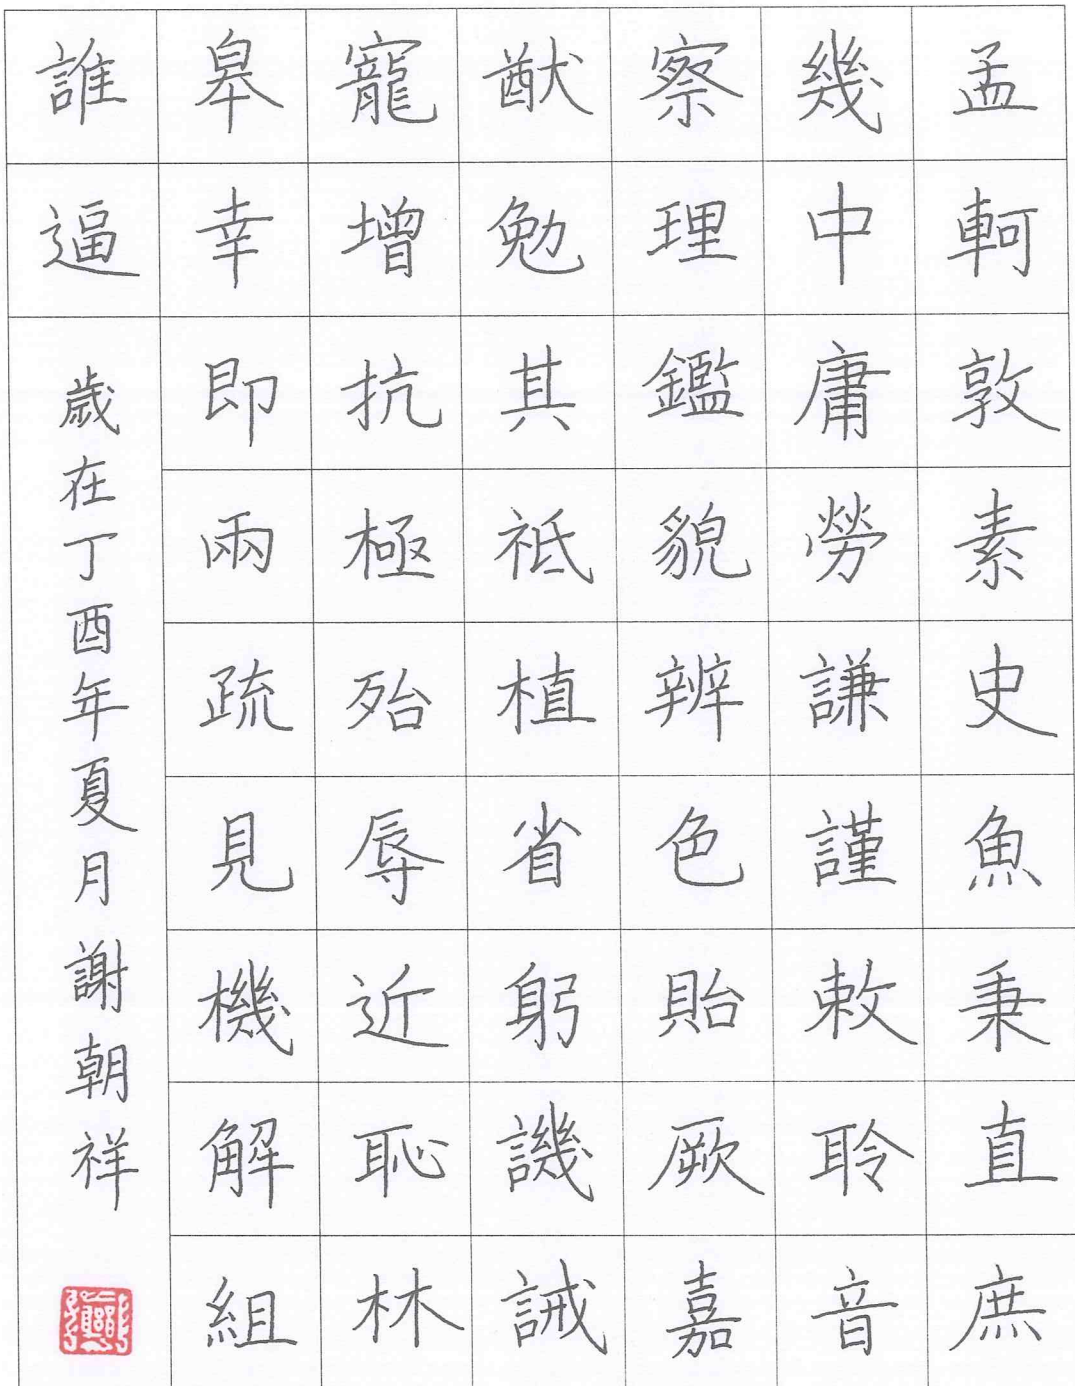 孟軻敦素史魚秉直庶
幾中庸勞謙謹敕聆音
察理鑑貌辨色貽厥嘉
猷勉其祗植省躬譏誡
寵增抗極殆辱近恥林
皋幸即兩疏見機解組
誰逼
歲在丁酉年夏月謝朝祥